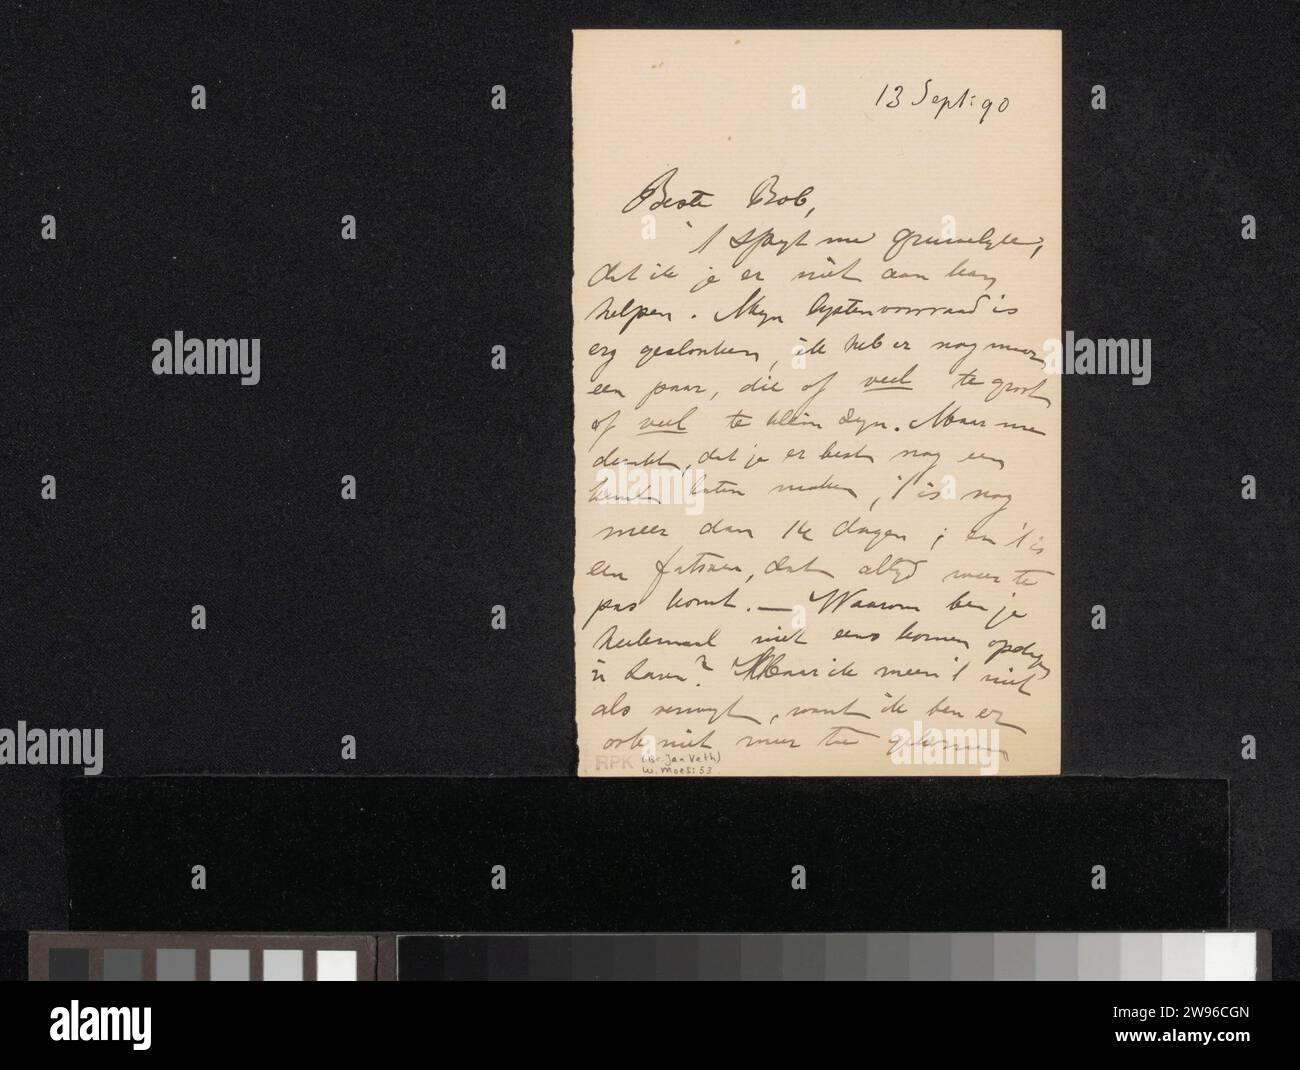 13 Sept: 90
Beste Bob,
't spijt me gruwelijk,
dat ik je er niet aan kan
helpen. Mijn lijstenvoorraad is
erg geslonken, ik heb er nog maar
een paar, die of veel te groot
of veel te klein zijn. Maar me
dunkt, dat je er best nog een
kunt laten maken, 't is nog
meer dan 14 dagen; en 't is
een fatsoen, dat altijd weer te
pas komt. — Waarom ben je
heelemaal niet eens komen opdagen
in Laren? Maar ik meen 't niet
als verwijt, want ik ben er
ook niet meer toe gekomen
RPK (Br. Jan Veth)
W. Moes: 53
alamy
Image ID: 2W96CGN
www.alamy.com